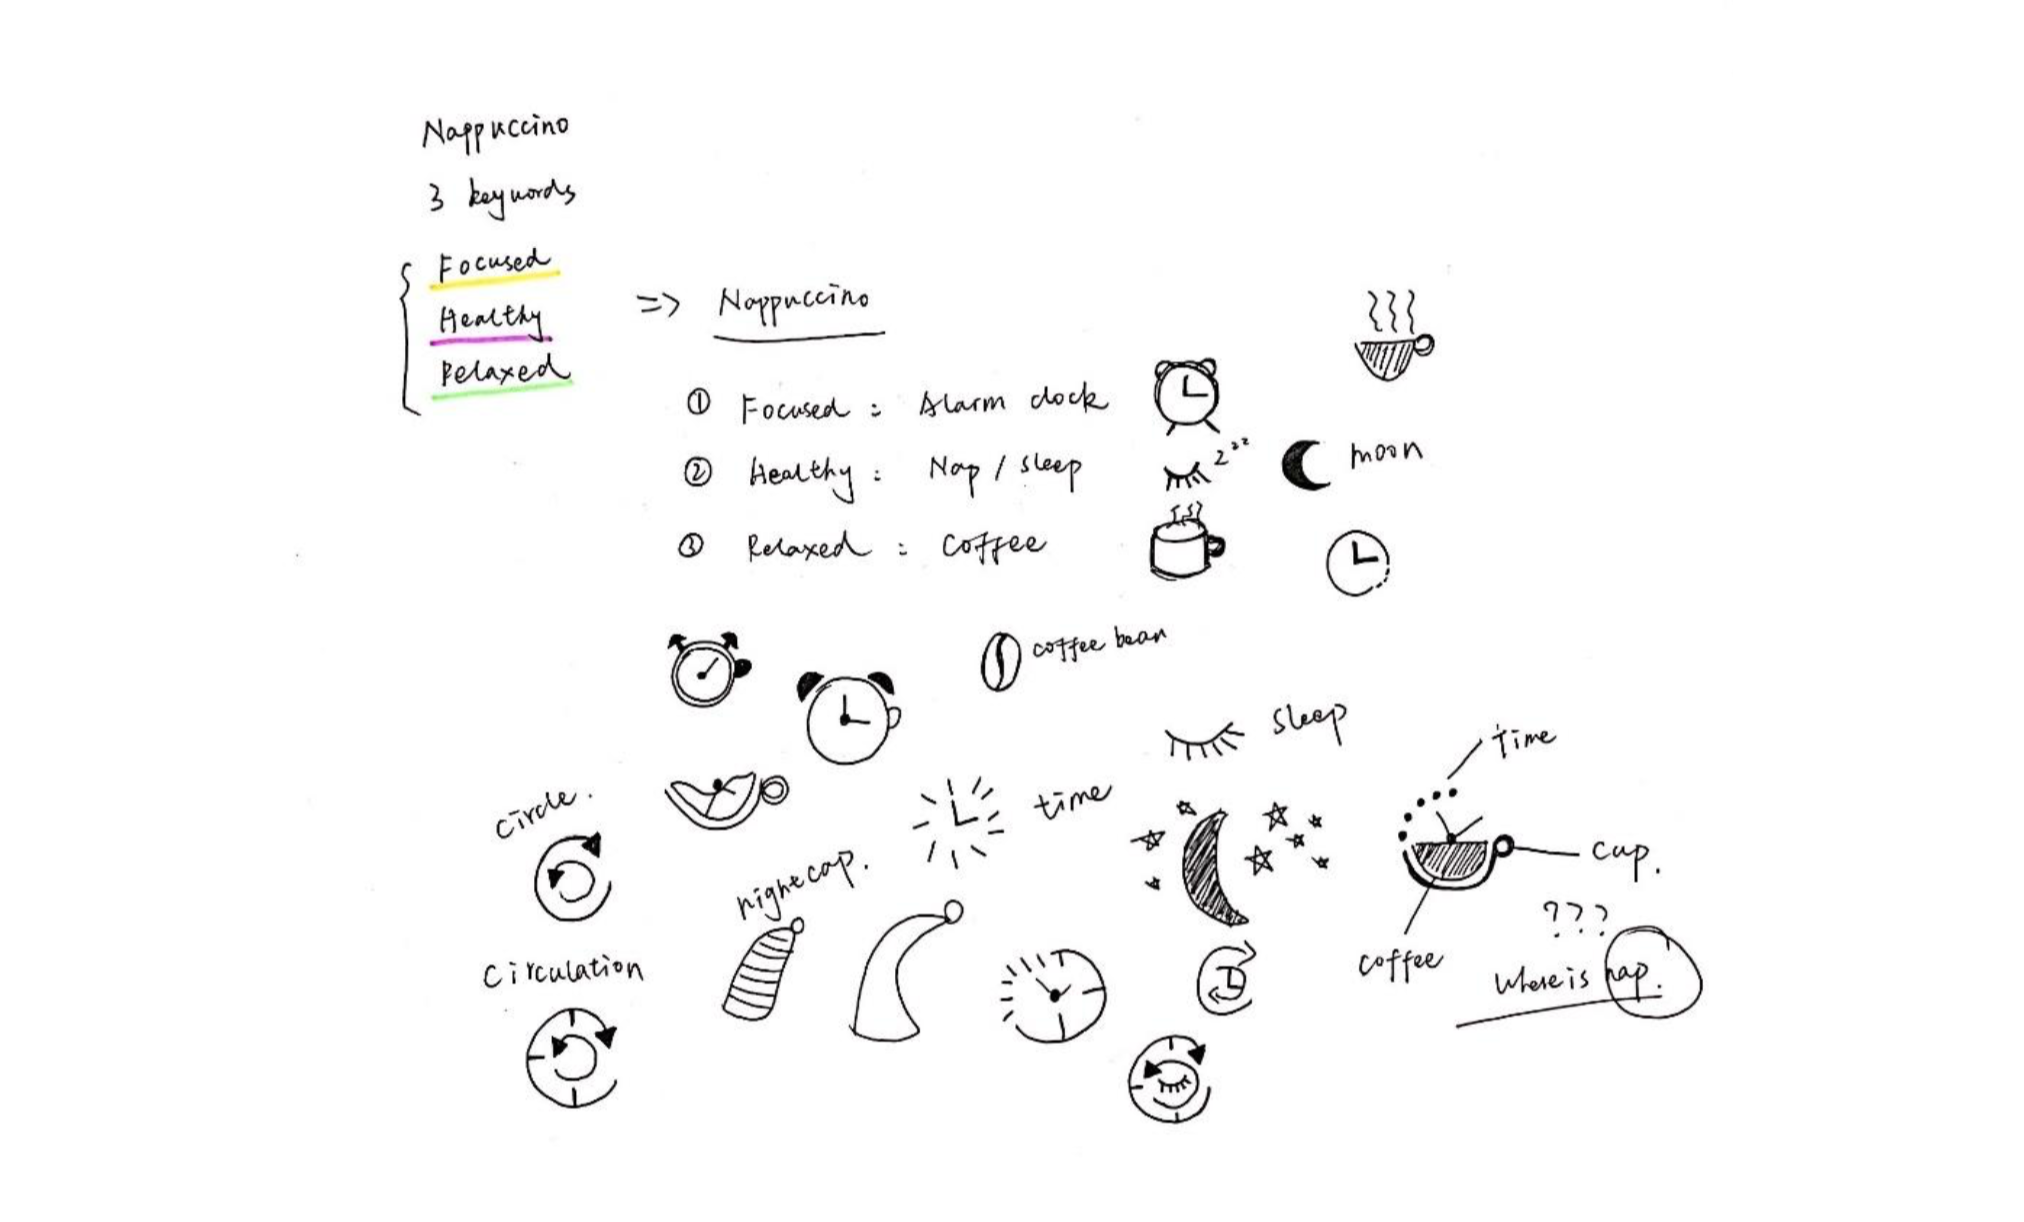 Nappuccino
3 keywords
Focused
Healthy
Relaxed
=> Nappuccino
① Focused : Alarm clock
② Healthy : Nap / sleep
zzz
moon
③ Relaxed : Coffee
coffee bean
sleep
Time
circle.
time
nightcap.
cup.
???
Circulation
coffee
Where is nap.